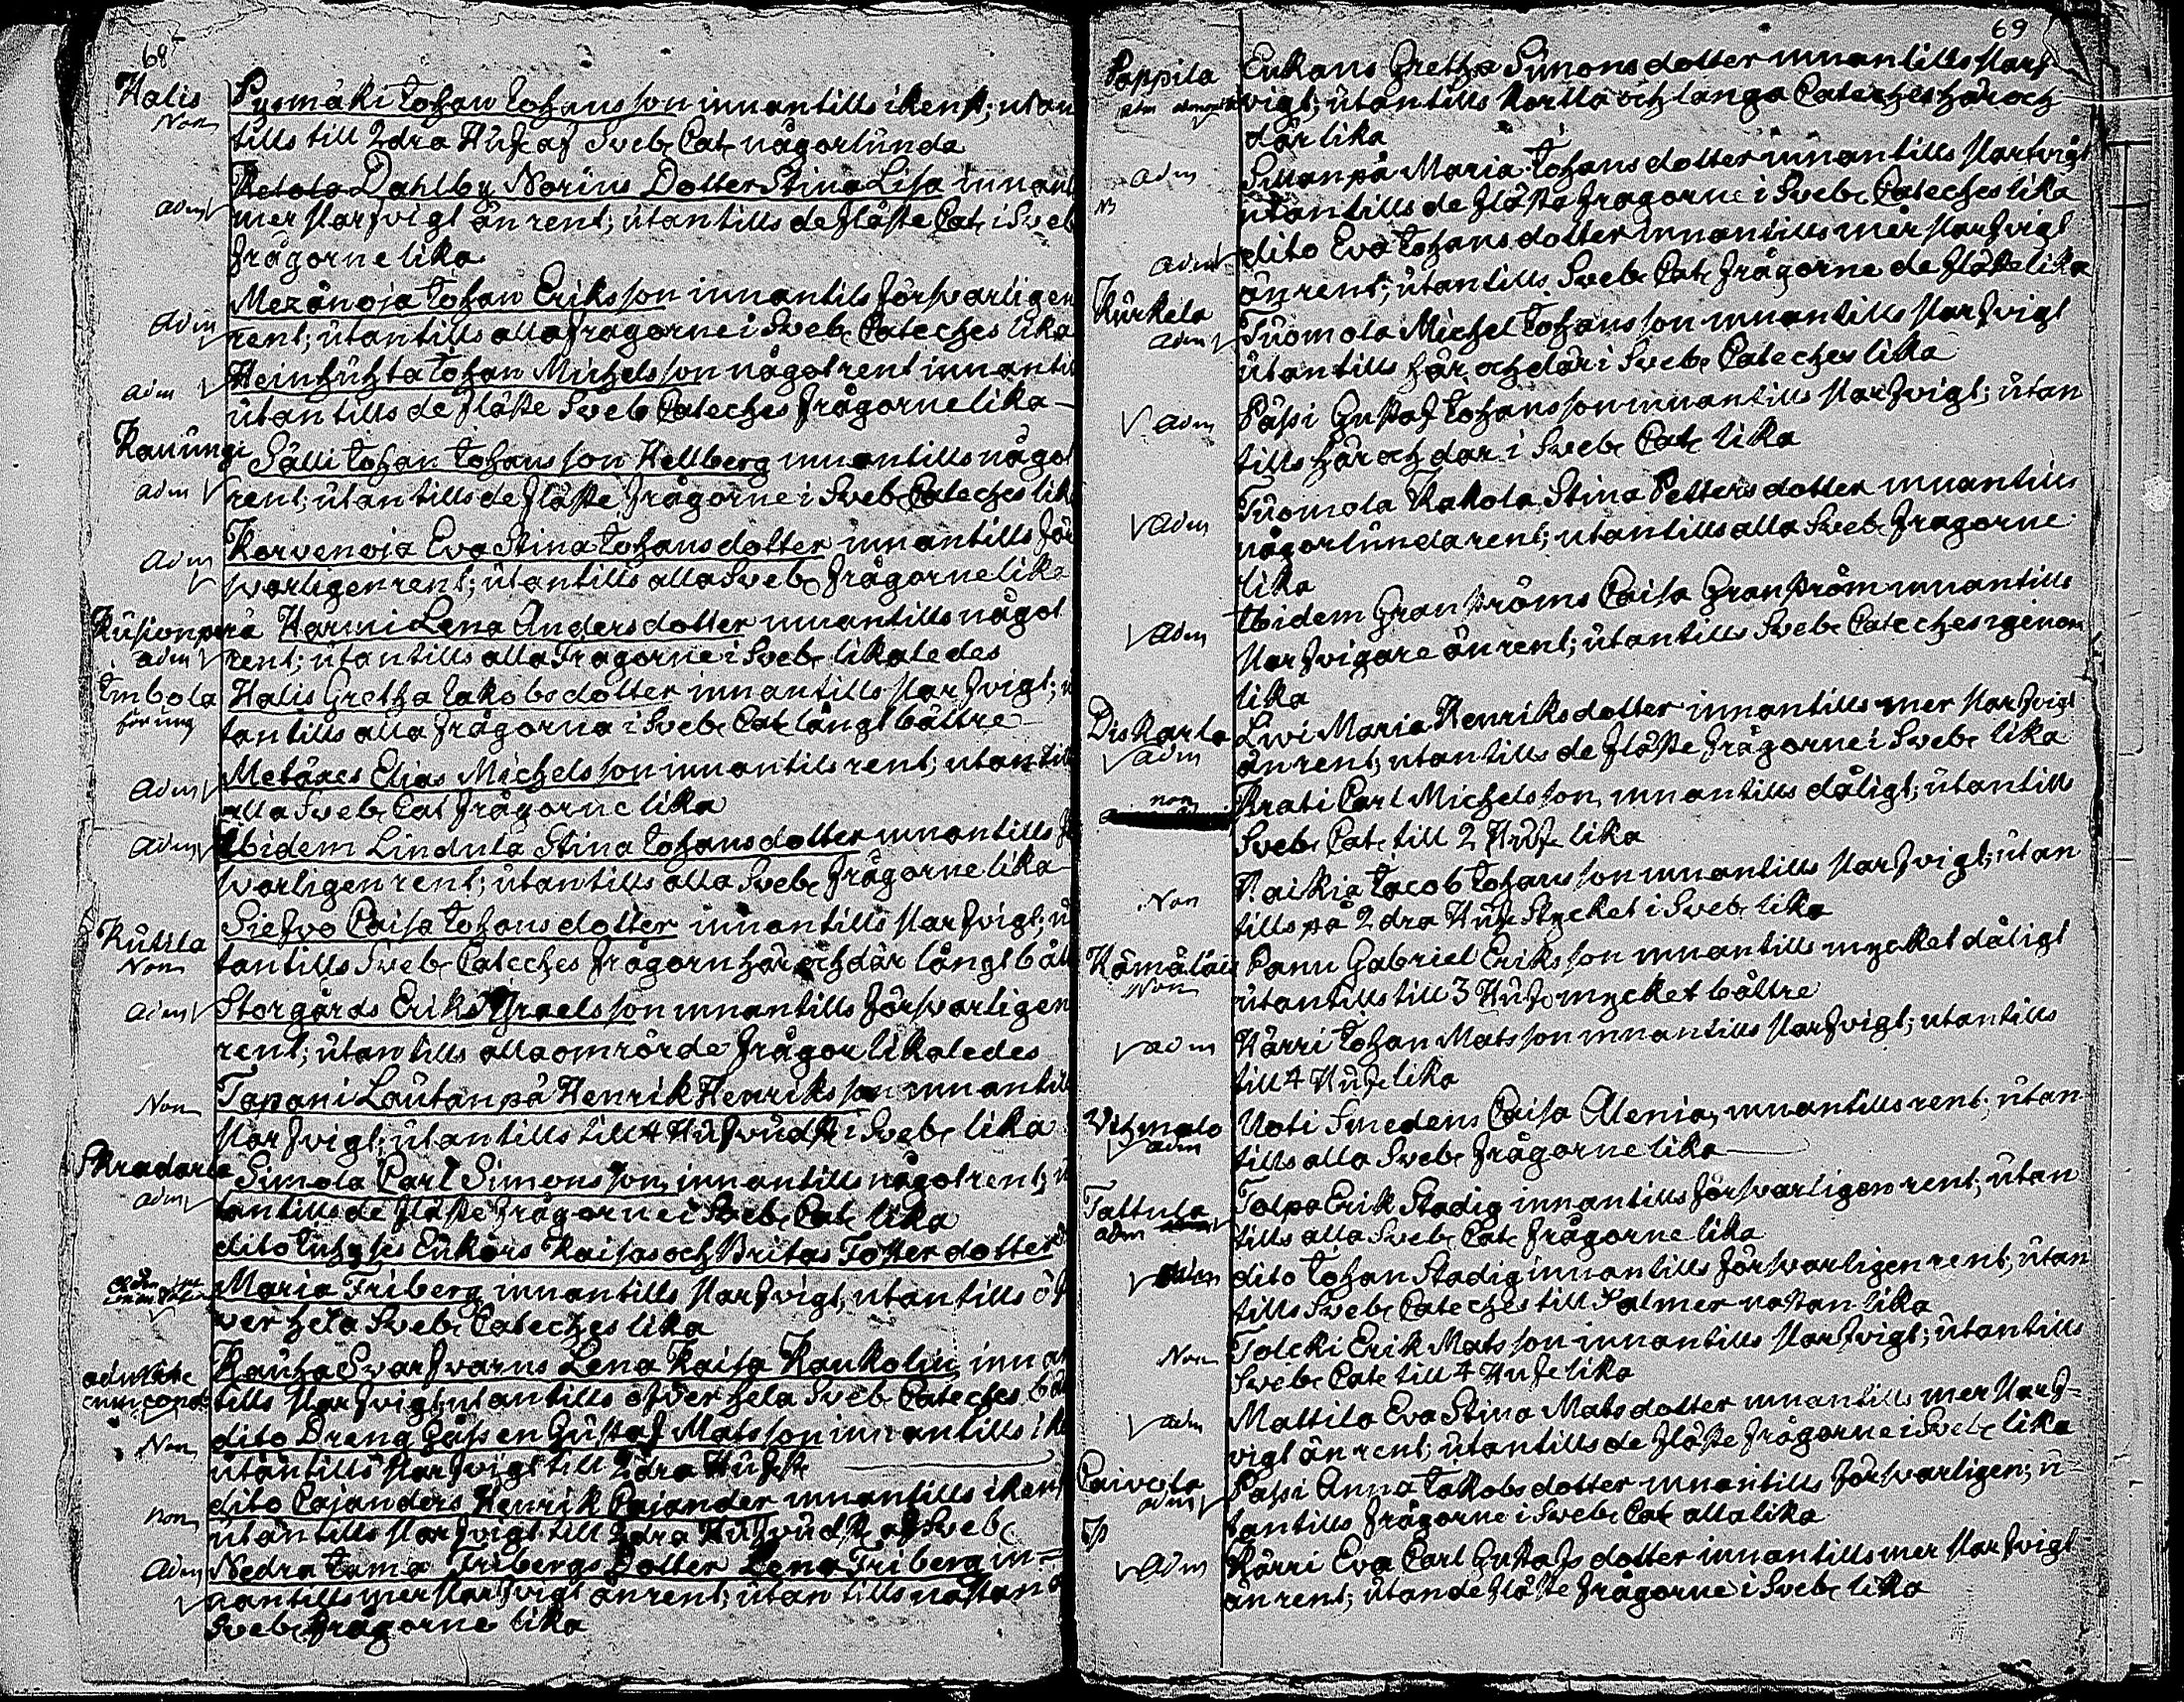 68
Halis Pysmäki Johan Johansson innantills i kenst; utan
Non
tills till 2dra Huf af Sveb. Cat. någorlunda
Ketola Dahlby Norins Dotter Stina Lisa innant
adm mer starfvigt än rent; utantills de fläste Cat. i Sveb
frågorne lika
Mezänoja Johan Eriksson innantils försvarligen
adm rent; utantills alla fragorne i Sveb. Cateches lika
Heinhuhta Johan Michelsson något rent innantil
adm utantills de fläste Sveb Cateches frågorne lika
Kanungi Sälli Johan Johansson Hellberg innantills någol
adm rent; utantills de fläste frågorne i Sveb Cateches lik
Korvenoja Eva Stina Johansdotter innantills för
adm svarligen rent; utantills alla Sveb. frågorne lika
Harmi Lena Andersdotter innantills något
adm rent; utantills alla Fragorne i Sveb. likaledes
Halis Gretha Jakobsdotter innantills starfvigt; u
för ung tantills alla frågorna i Sveb. Cat långt bättre
Metäxes Elias Michelsson innantils rent; utantill
adm alla Sveb. Cat frågorne lika
adm Ibidem Lindula Stina Johansdotter innantills fö
svarligen rent; utantills alla Sveb. frågorne lika
Siefvo Caisa Johansdotter innantills starfvigt; u
Kutila
Non tantills Sveb. Cateches frågorn här och där långt bätt
adm Storgårds Erik Israelsson innantills försvarligen
rent; utantills alla omrörde frågor likaledes
Non Tapani Lautanpä Henrik Henriksson innantill
starfvigt; utantills till 4 Hufvudst i Sveb. lika
Skradarla Simola Carl Simonsson, innantills något rent; u
adm tantills de fläste frågorne i Sveb. Cat. lika
dito Enkors Kaisas och Britas Dotterdotter
Maria Friberg innantills starfvigt, utantills öf
ver hela Sveb. Cateches lika
Kauha Svarfvarns Lena Kaisa Kaukolin, innan
tills starfvigt; utantills öfver hela Sveb Cateches bät
dito Dreng Gåssen Gustaf Matsson innantills i ke
Non utantills starfvigt till 2dra Hufst
dito Cajanders Henrik Cajander innantills i kenst
non utantills starfvigt till 2dra Hufvudst af Sveb.
adm Nedra Jama Fribergs Dotter Lena Friberg in=
nantills mer starfvigt än rent; utantills nästan a
Sveb. frågorne lika
69
Pappila Enkans Gretha Simonsdotter innantills starf
vigt; utantills korta och langa Cateches här och
där lika
adm Suanpä Maria Johansdotter innantills starfvigt
utantills de fläste fragorne i Sveb. Cateches lika
dito Eva Johansdotter innantills mer starfvigt
adm än rent; utantills Sveb. Cat. frågorne de fläste lika
Kurkela Tuomola Michel Johansson innantills starfvigt
adm utantills här och där i Sveb. Cateches lika
adm Pässi Gustaf Johansson innantills starfvigt; utan
tills här och dar i Sveb. Cat. lika
Tuomola Kakola Stina Pettersdotter innantills
adm någorlunda rent; utantills alla Sveb. fragorne
lika
Ibidem Granströms Caisa Granström innantills
adm starfvigare än rent; utantills Sveb. Cateches igenom
lika
Diskarla Livi Maria Henriksdotter innantills mer starfvigt
adm än rent; utantills de fläste frågorne i Sveb. lika
non Krati Carl Michelsson, innantills dåligt; utantills
Sveb. Cat. till 2 Huf lika
Raikia Jacob Johansson innantills starfvigt; utan
Non tills på 2dra Huf Stycket i Sveb. lika
Panu Gabriel Eriksson innantills mycket dåligt
Non utantills till 3 Huf. mycket bättre
adm Härri Johan Matsson innantills starfvigt; utantills
till 4 Huf. lika
Vihmalo Uoti Smedens Caisa Alenia, innantills rent; utan
adm tills alla Sveb. frågorne lika
Tattula Tolpa Erik Stadig innantills försvarligen rent; utan
adm tills alla Sveb. Cat. frågorne lika
dito Johan Stadig innantills försvarligen rent, utan
tills Sveb. Cateches till Psalmer nästan lika
Non Tolcki Erik Matsson innantills starfvigt; utantills
Sveb. Cat. till 4 Huf. lika
adm Mattila Eva Stina Matsdotter innantills mer starf=
vigt än rent; utantills de fläste frågorne i Sveb. lika
Caivola Passi Anna Jakobsdotter innantills försvarligen; u=
adm tantills frågorne i Sveb. Cat alla lika
adm Kärri Eva Carl Gustafsdotter innantills mer starfvigt
än rent; utan de fläste frågorne i Sveb. lika